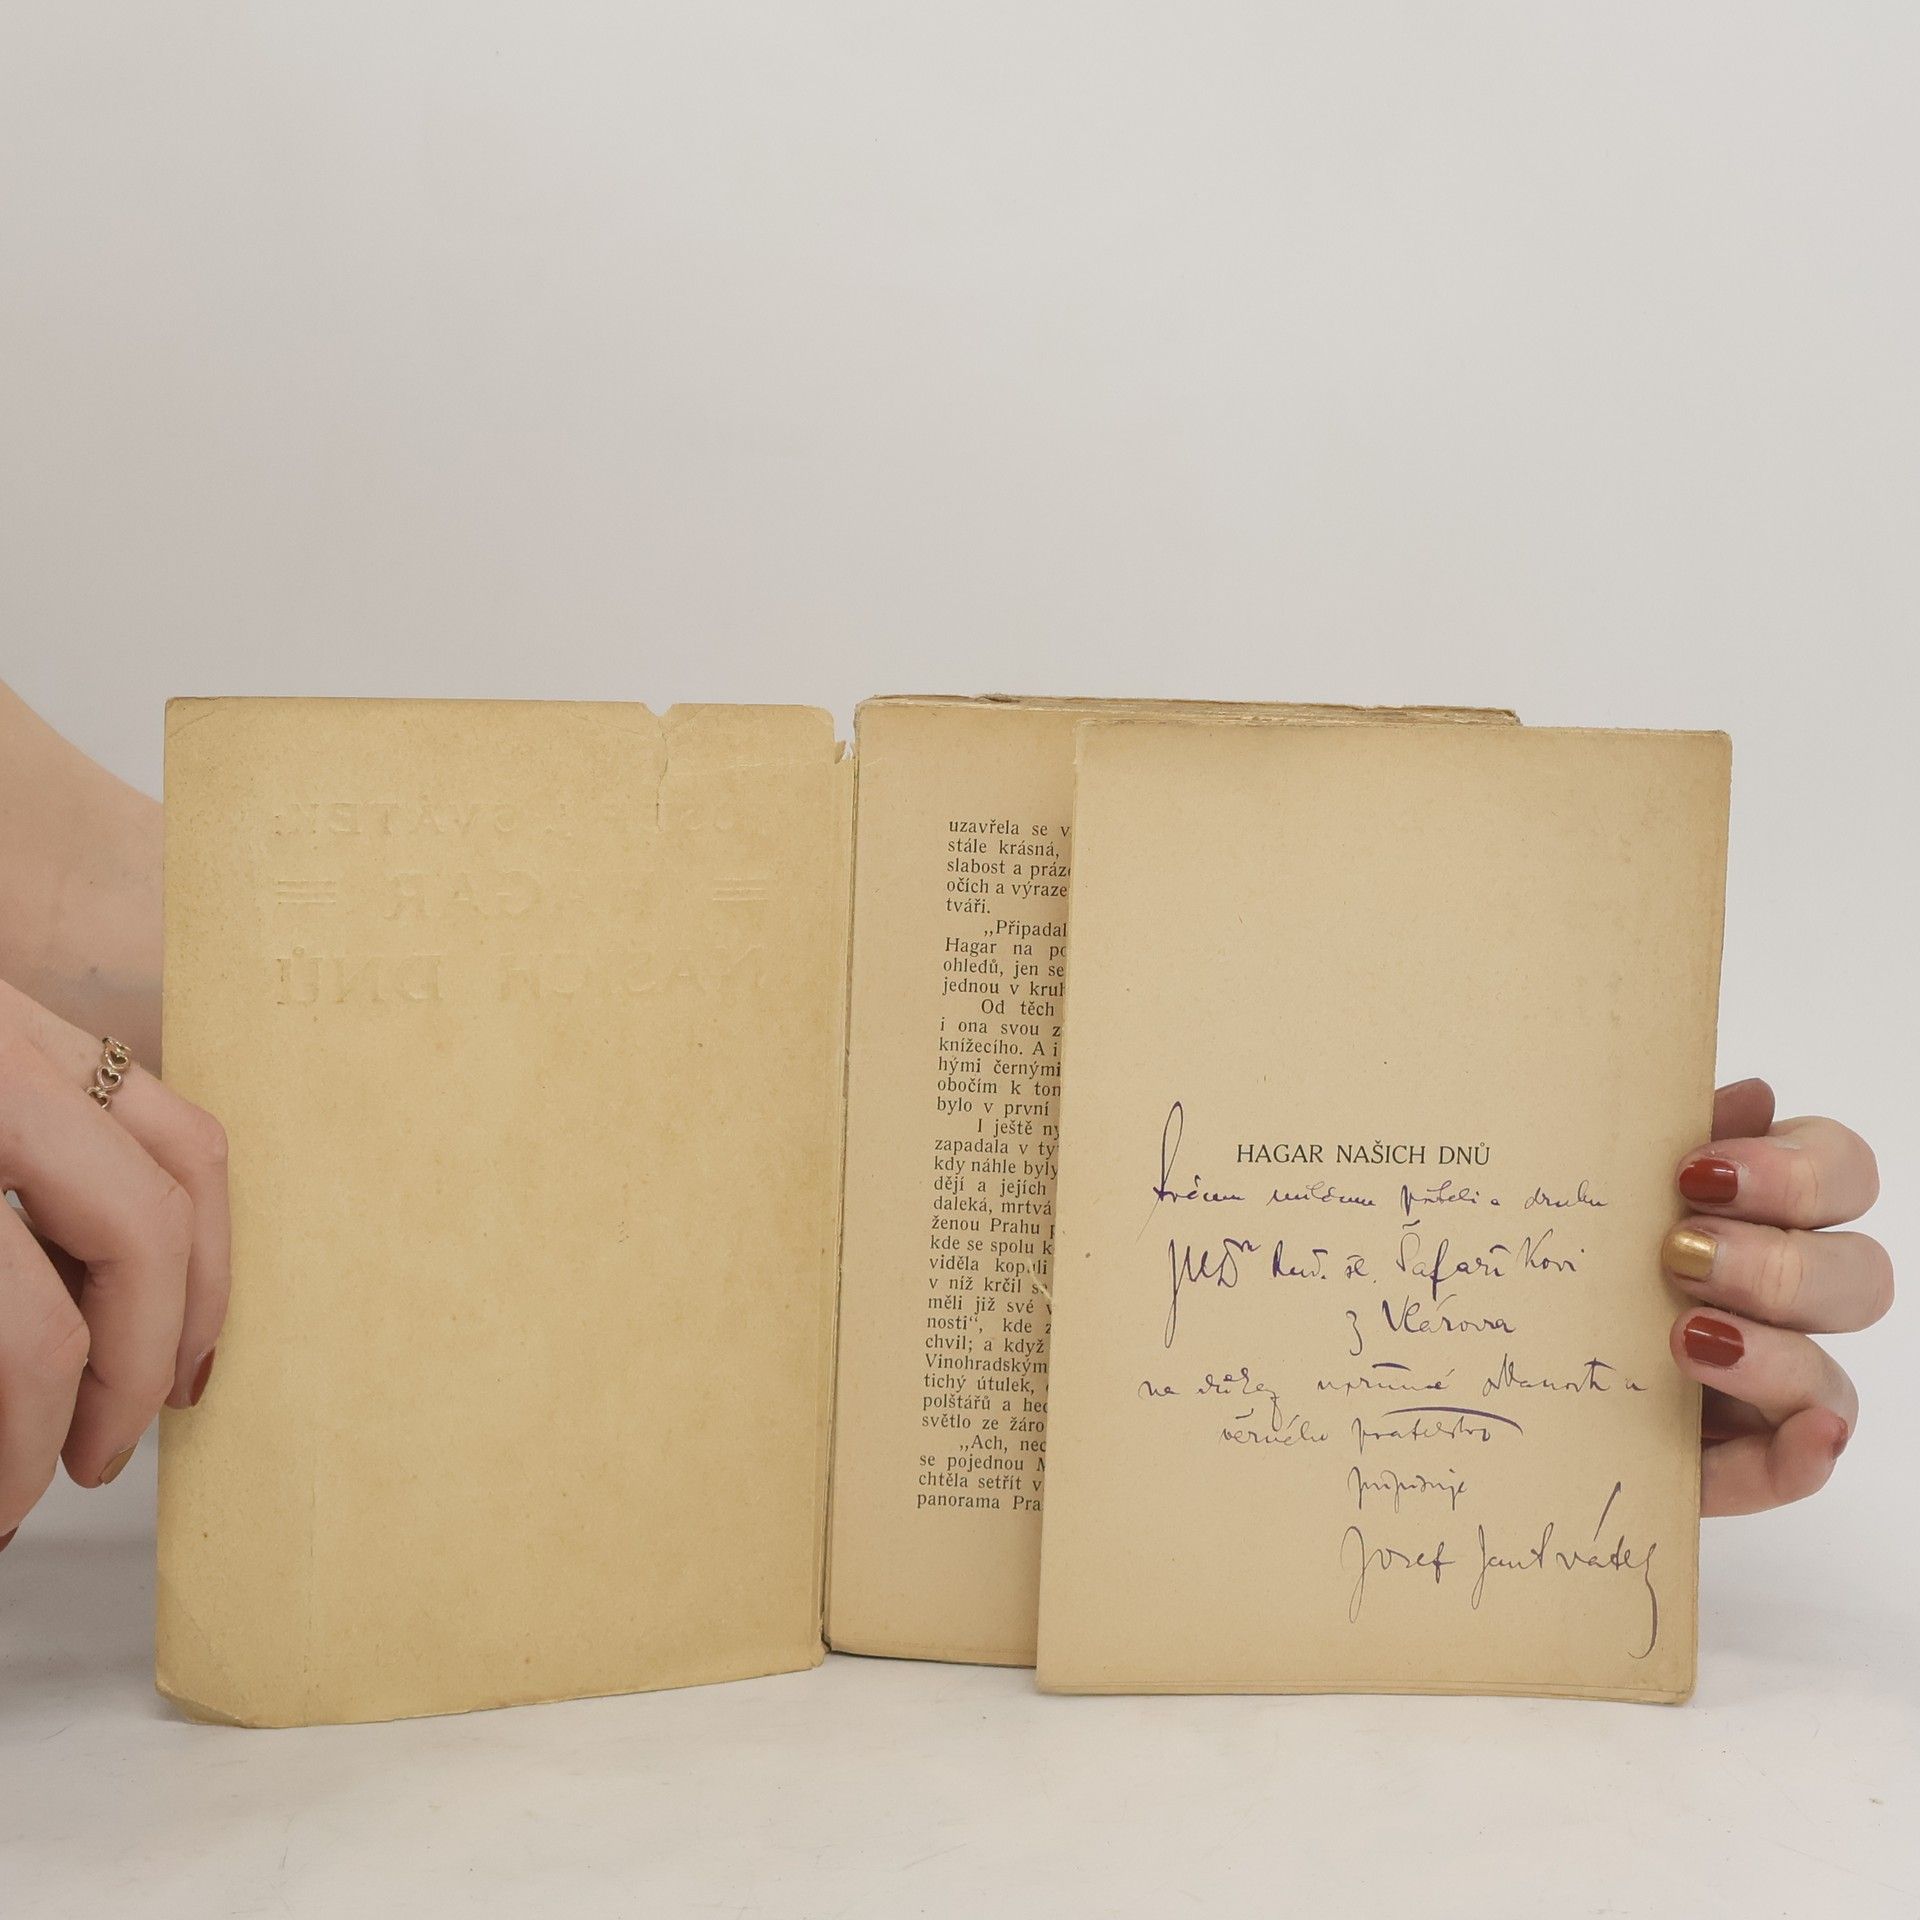 SVÁTEK
HAGAR
NAŠICH DNŮ
uzavřela se v
stále krásná,
slabost a práz
očích a výraze
tváři.
„Připadal
Hagar na po
ohledů, jen se
jednou v kruh
Od těch
i ona svou z
knížecího. A i
hými černými
obočím k tom
bylo v první
I ještě ny
zapadala v ty
kdy náhle byly
dějí a jejích
daleká, mrtvá
ženou Prahu p
kde se spolu k
viděla kopali
v níž krčil se
měli již své v
nosti“, kde z
chvil; a když
Vinohradským
tichý útulek,
polštářů a hed
světlo ze žáro
„Ach, nec
se pojednou M
chtěla setřít v
panorama Pra
HAGAR NAŠICH DNŮ
Svému milému příteli a druhu
JUDr Rud. Šafaříkovi
z
na důkaz upřímné oddanosti a
věrného přátelství
připisuje
Josef Jan Svátek